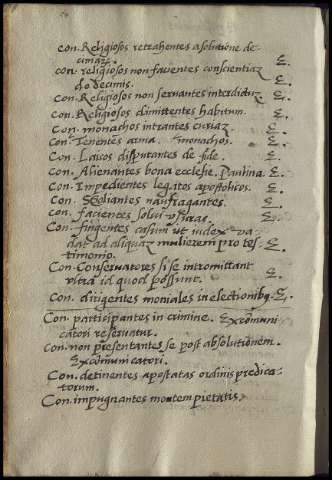 Con. Religiosos retrahentes a solutione de-
cimar. E.
con. religiosos non facientes conscientiaz
de decimis. E.
Con. Religiosos non servantes interdictuz E.
Con. Religiosos dimittentes habitum. E.
Con. monachos intrantes curiaz E.
Con. Tenentes arma. monachos. E.
Con. Laicos disputantes de fide. E.
Con. Alienantes bona ecclesie. Paulina. E.
Con. Impedientes legatos apostolicos. E.
Con. Spoliantes naufragantes. E.
Con. facientes solui usuras. E.
Con. fingentes casum ut iudex va-
dat ad aliquaz mulierem pro tes- E.
timonio.
Con. Conservatores si se intromittant
ultra id quod possunt. E.
Con. dirigentes moniales in electionibq. E.
Con. participantes in crimine. Excomuni
catori reservatur.
Con. non presentantes se post absolutionem.
Excomunicatori.
Con. detinentes apostatas ordinis predica-
torum.
Con. impugnantes montem pietatis.